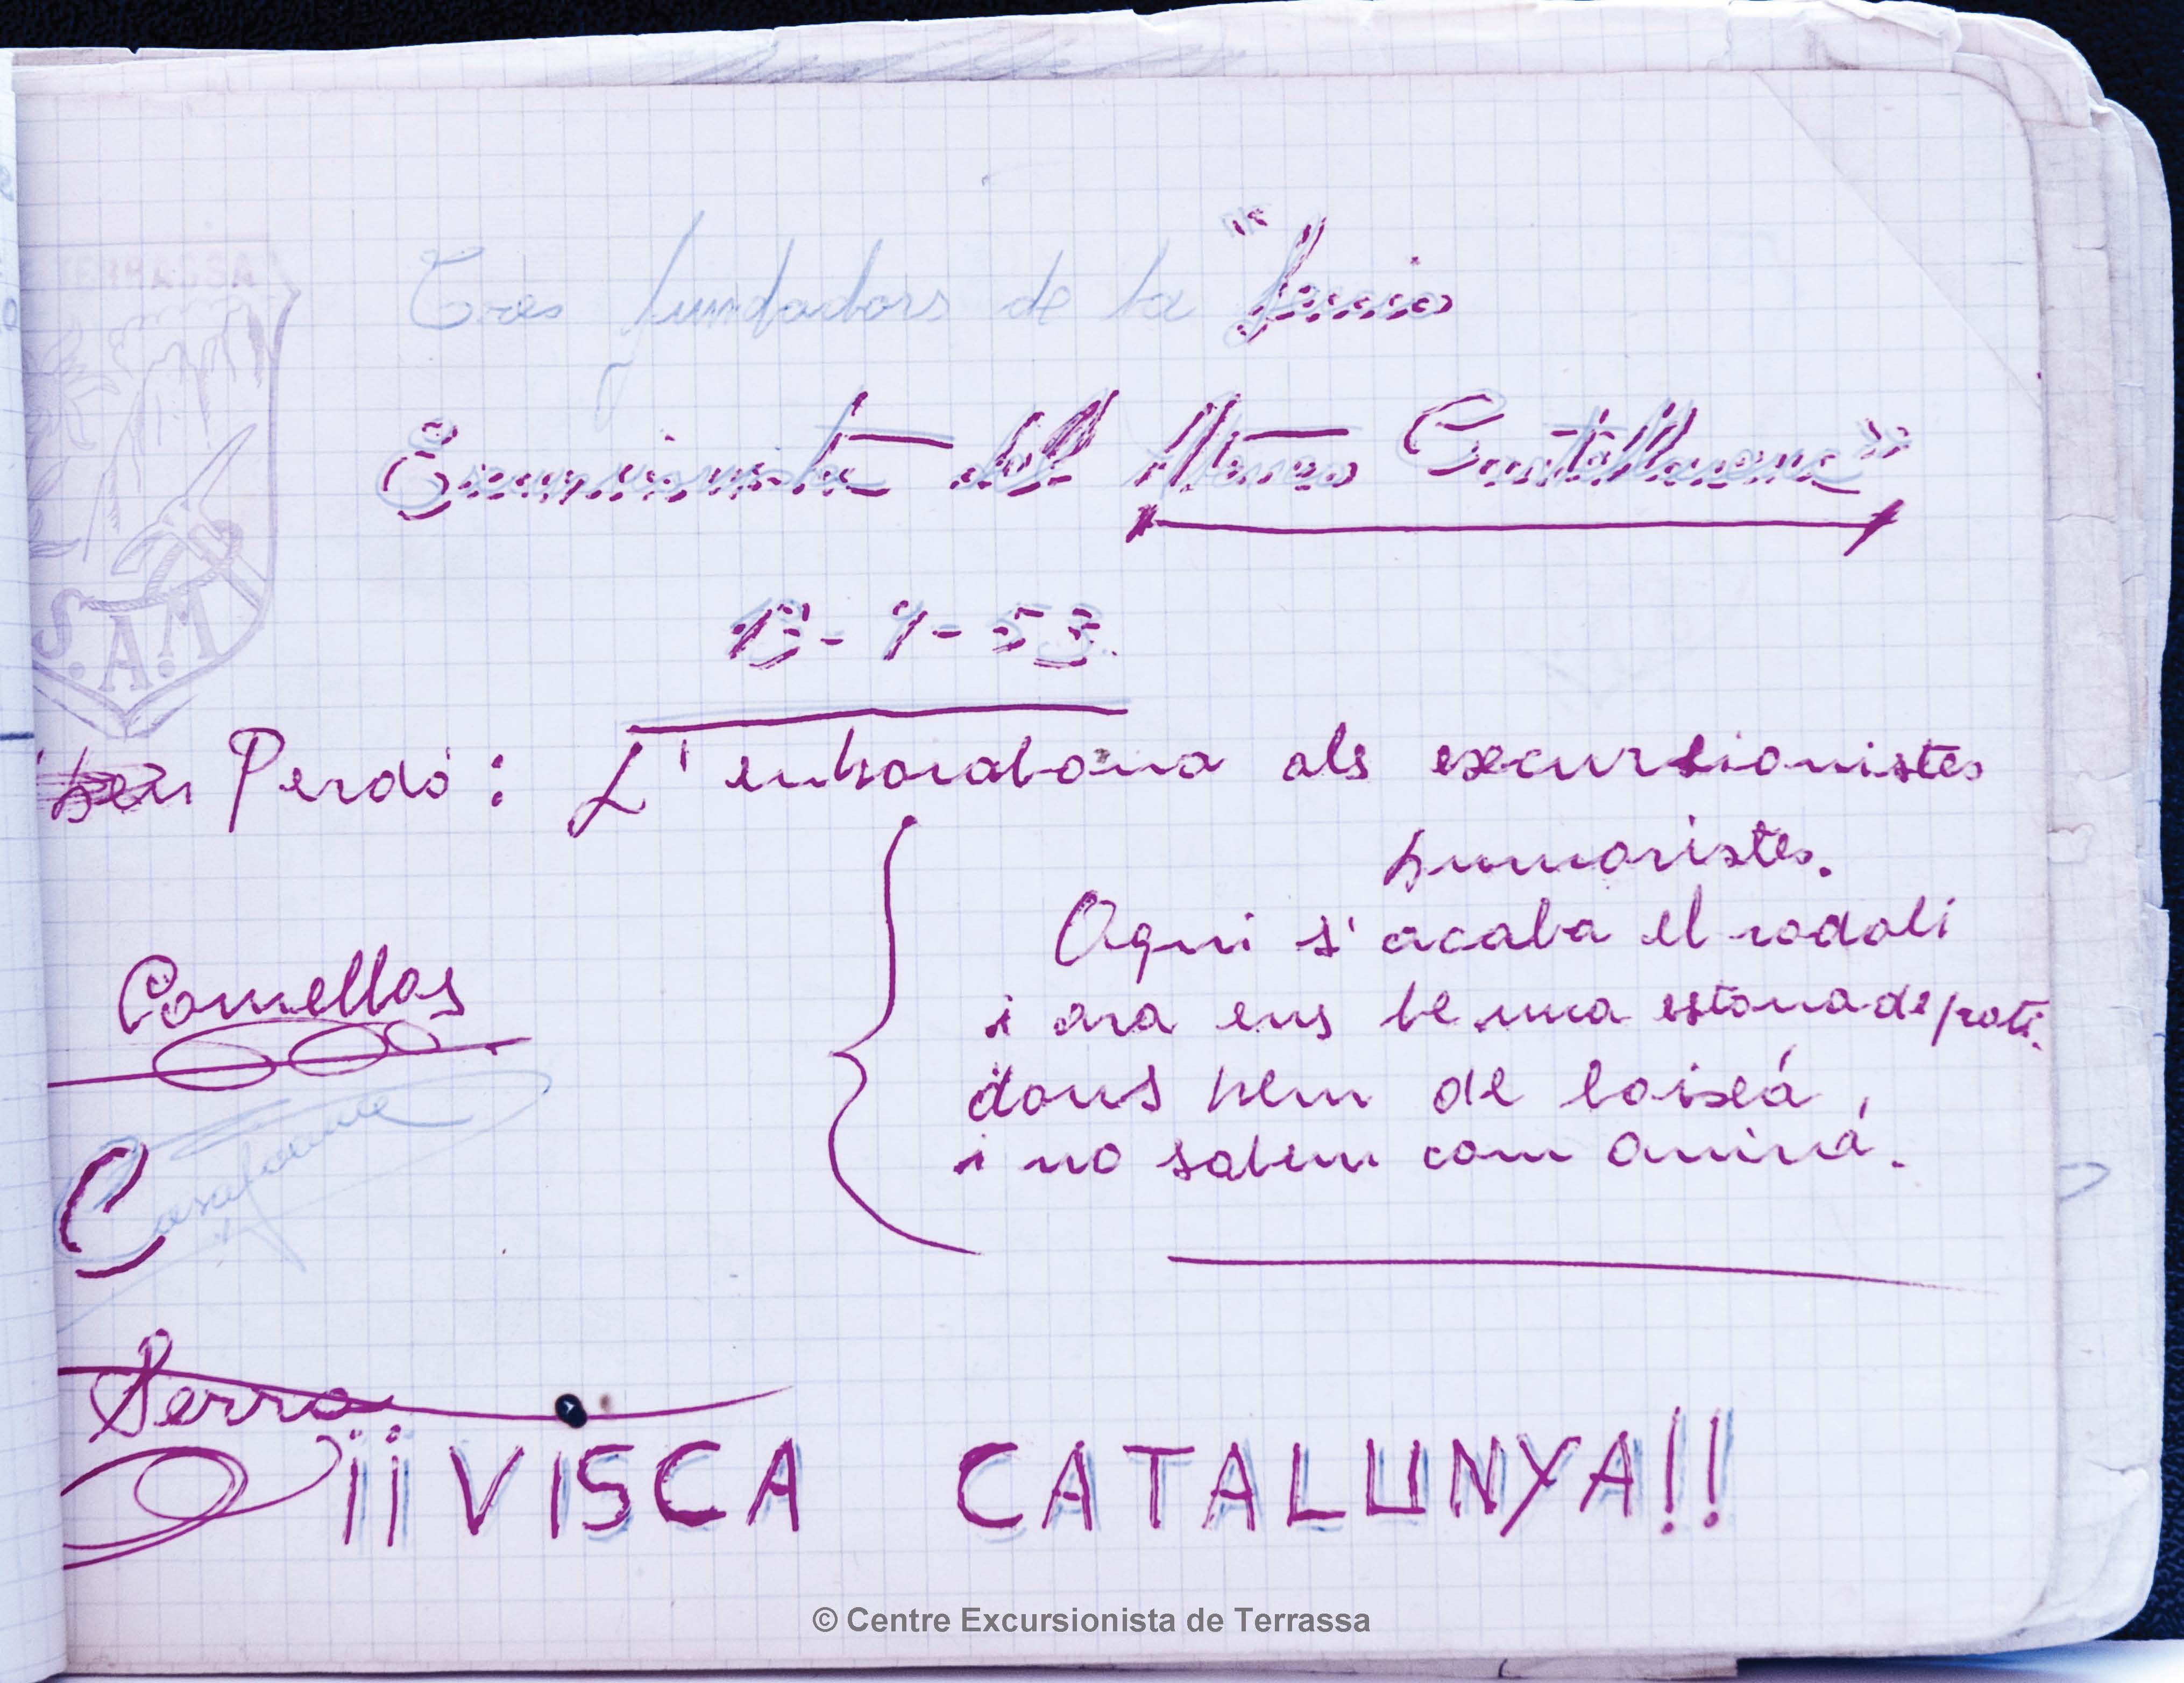 Tres fundadors de la "Secció
Excursionista del Ateneo Castellarenc"
13-9-53.
Perdó: L'enhorabona als excursionistes
humoristes.
Aqui s'acaba el rodoli
i ara ens be una estona de pati.
dons hem de baixá,
i no sabem com anirá.
Comellas
Casafont
Serra
¡¡VISCA CATALUNYA!!
S.A.M
© Centre Excursionista de Terrassa